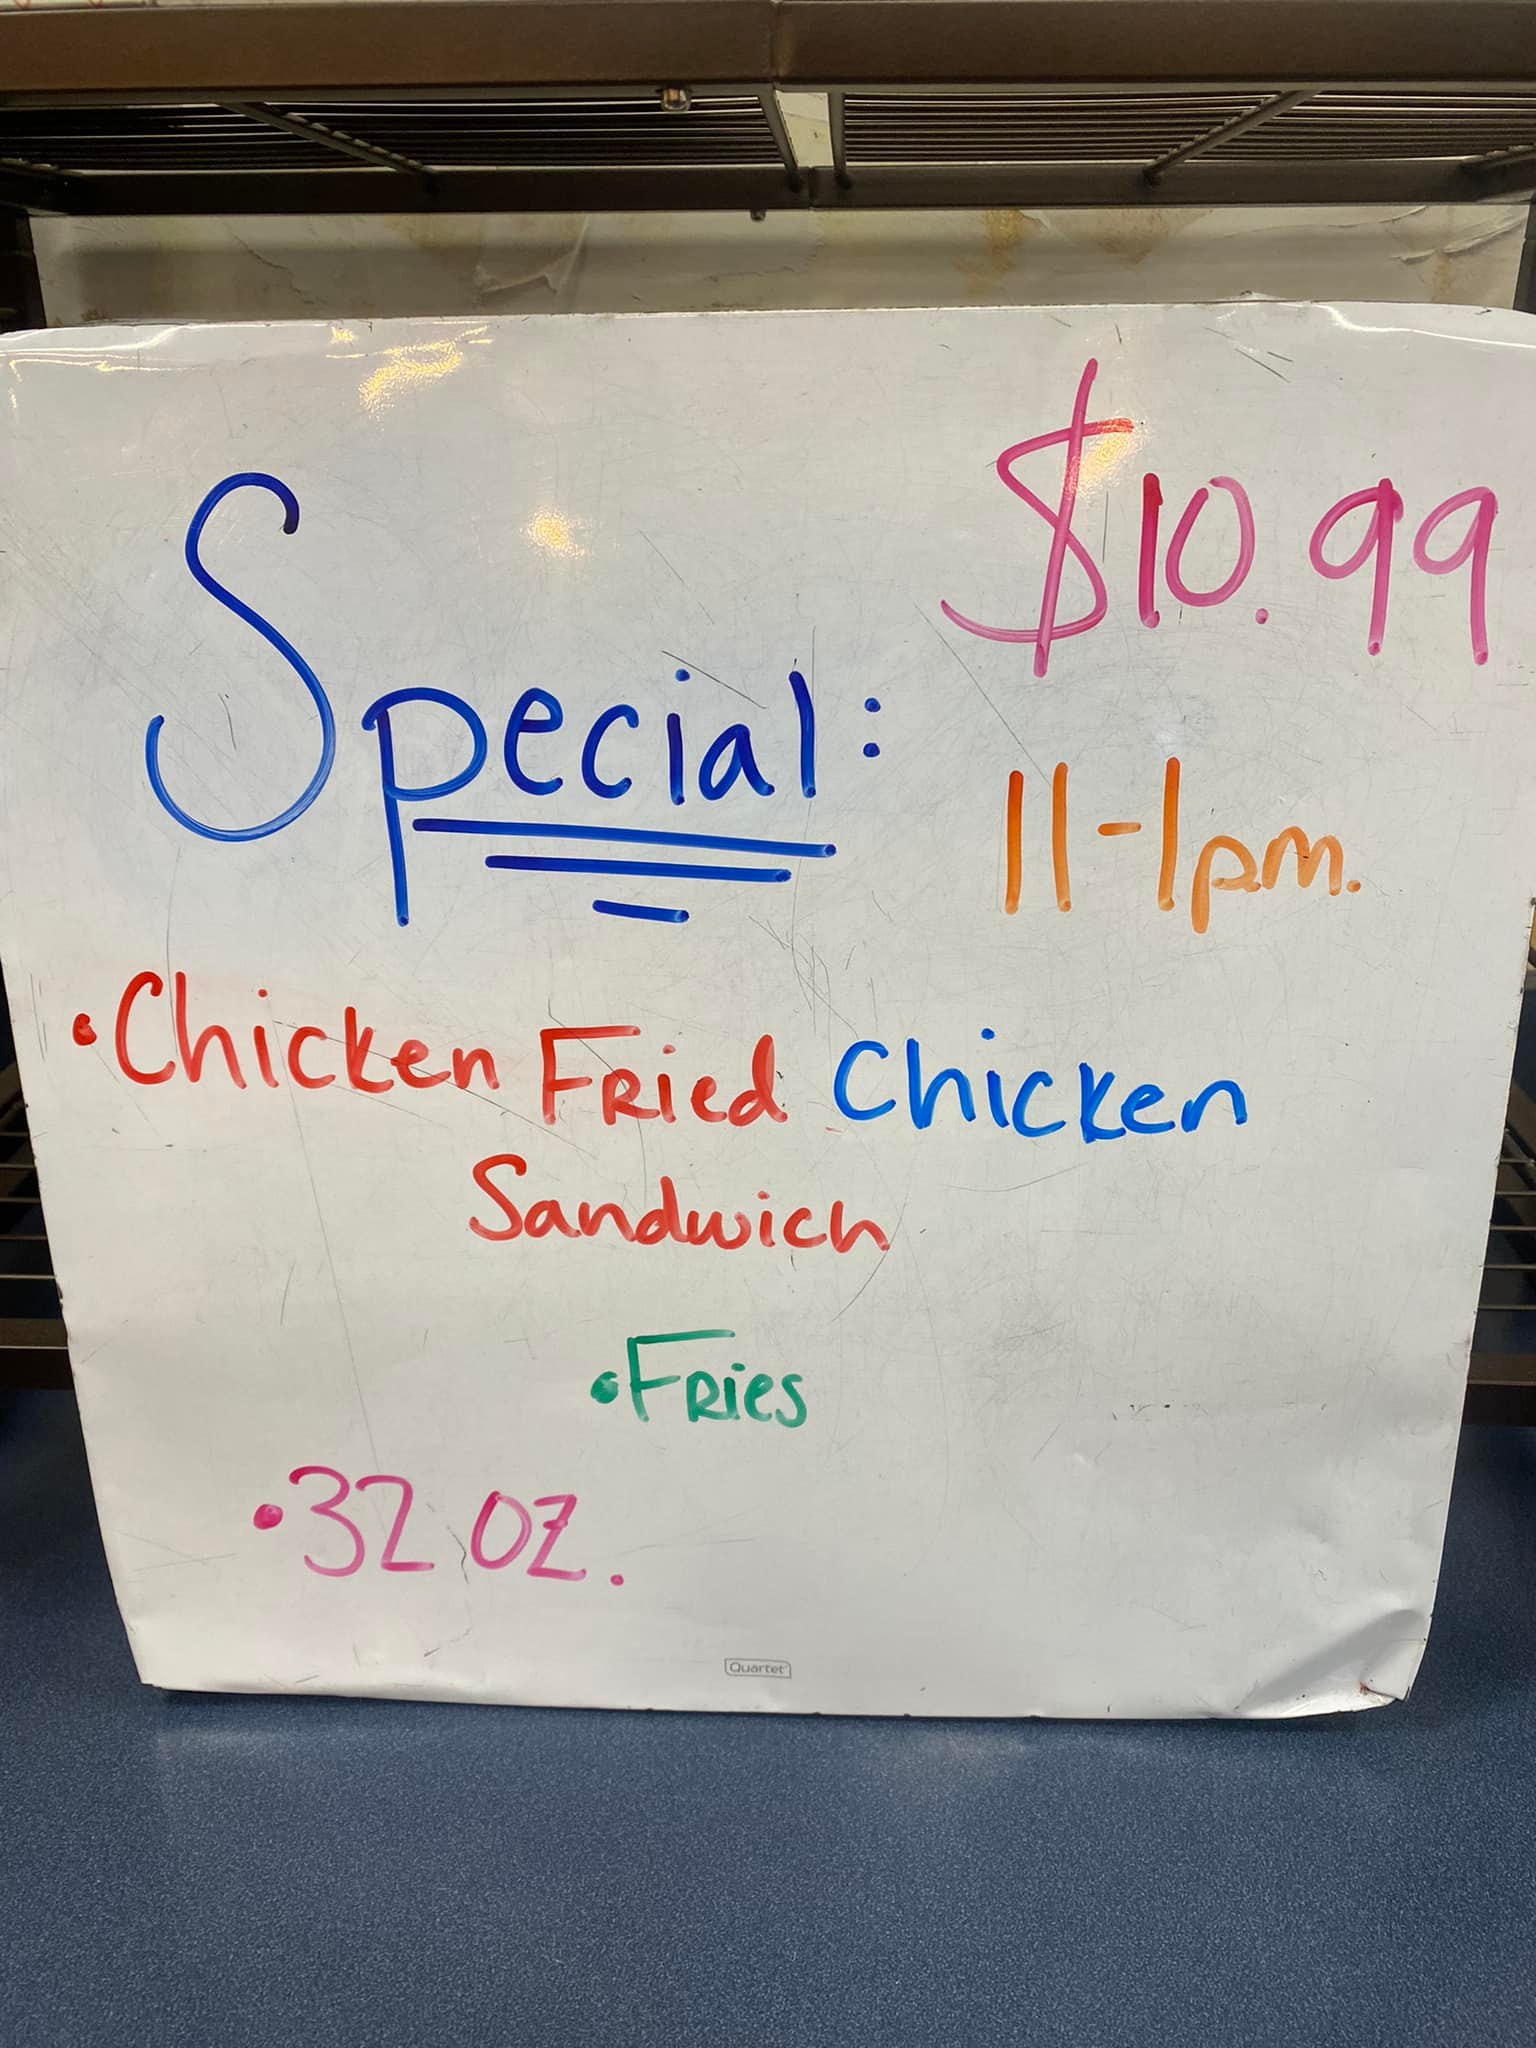 $10.99
Special:
11-1pm.
•Chicken Fried Chicken
Sandwich
•Fries
•32 oz.
Quartet